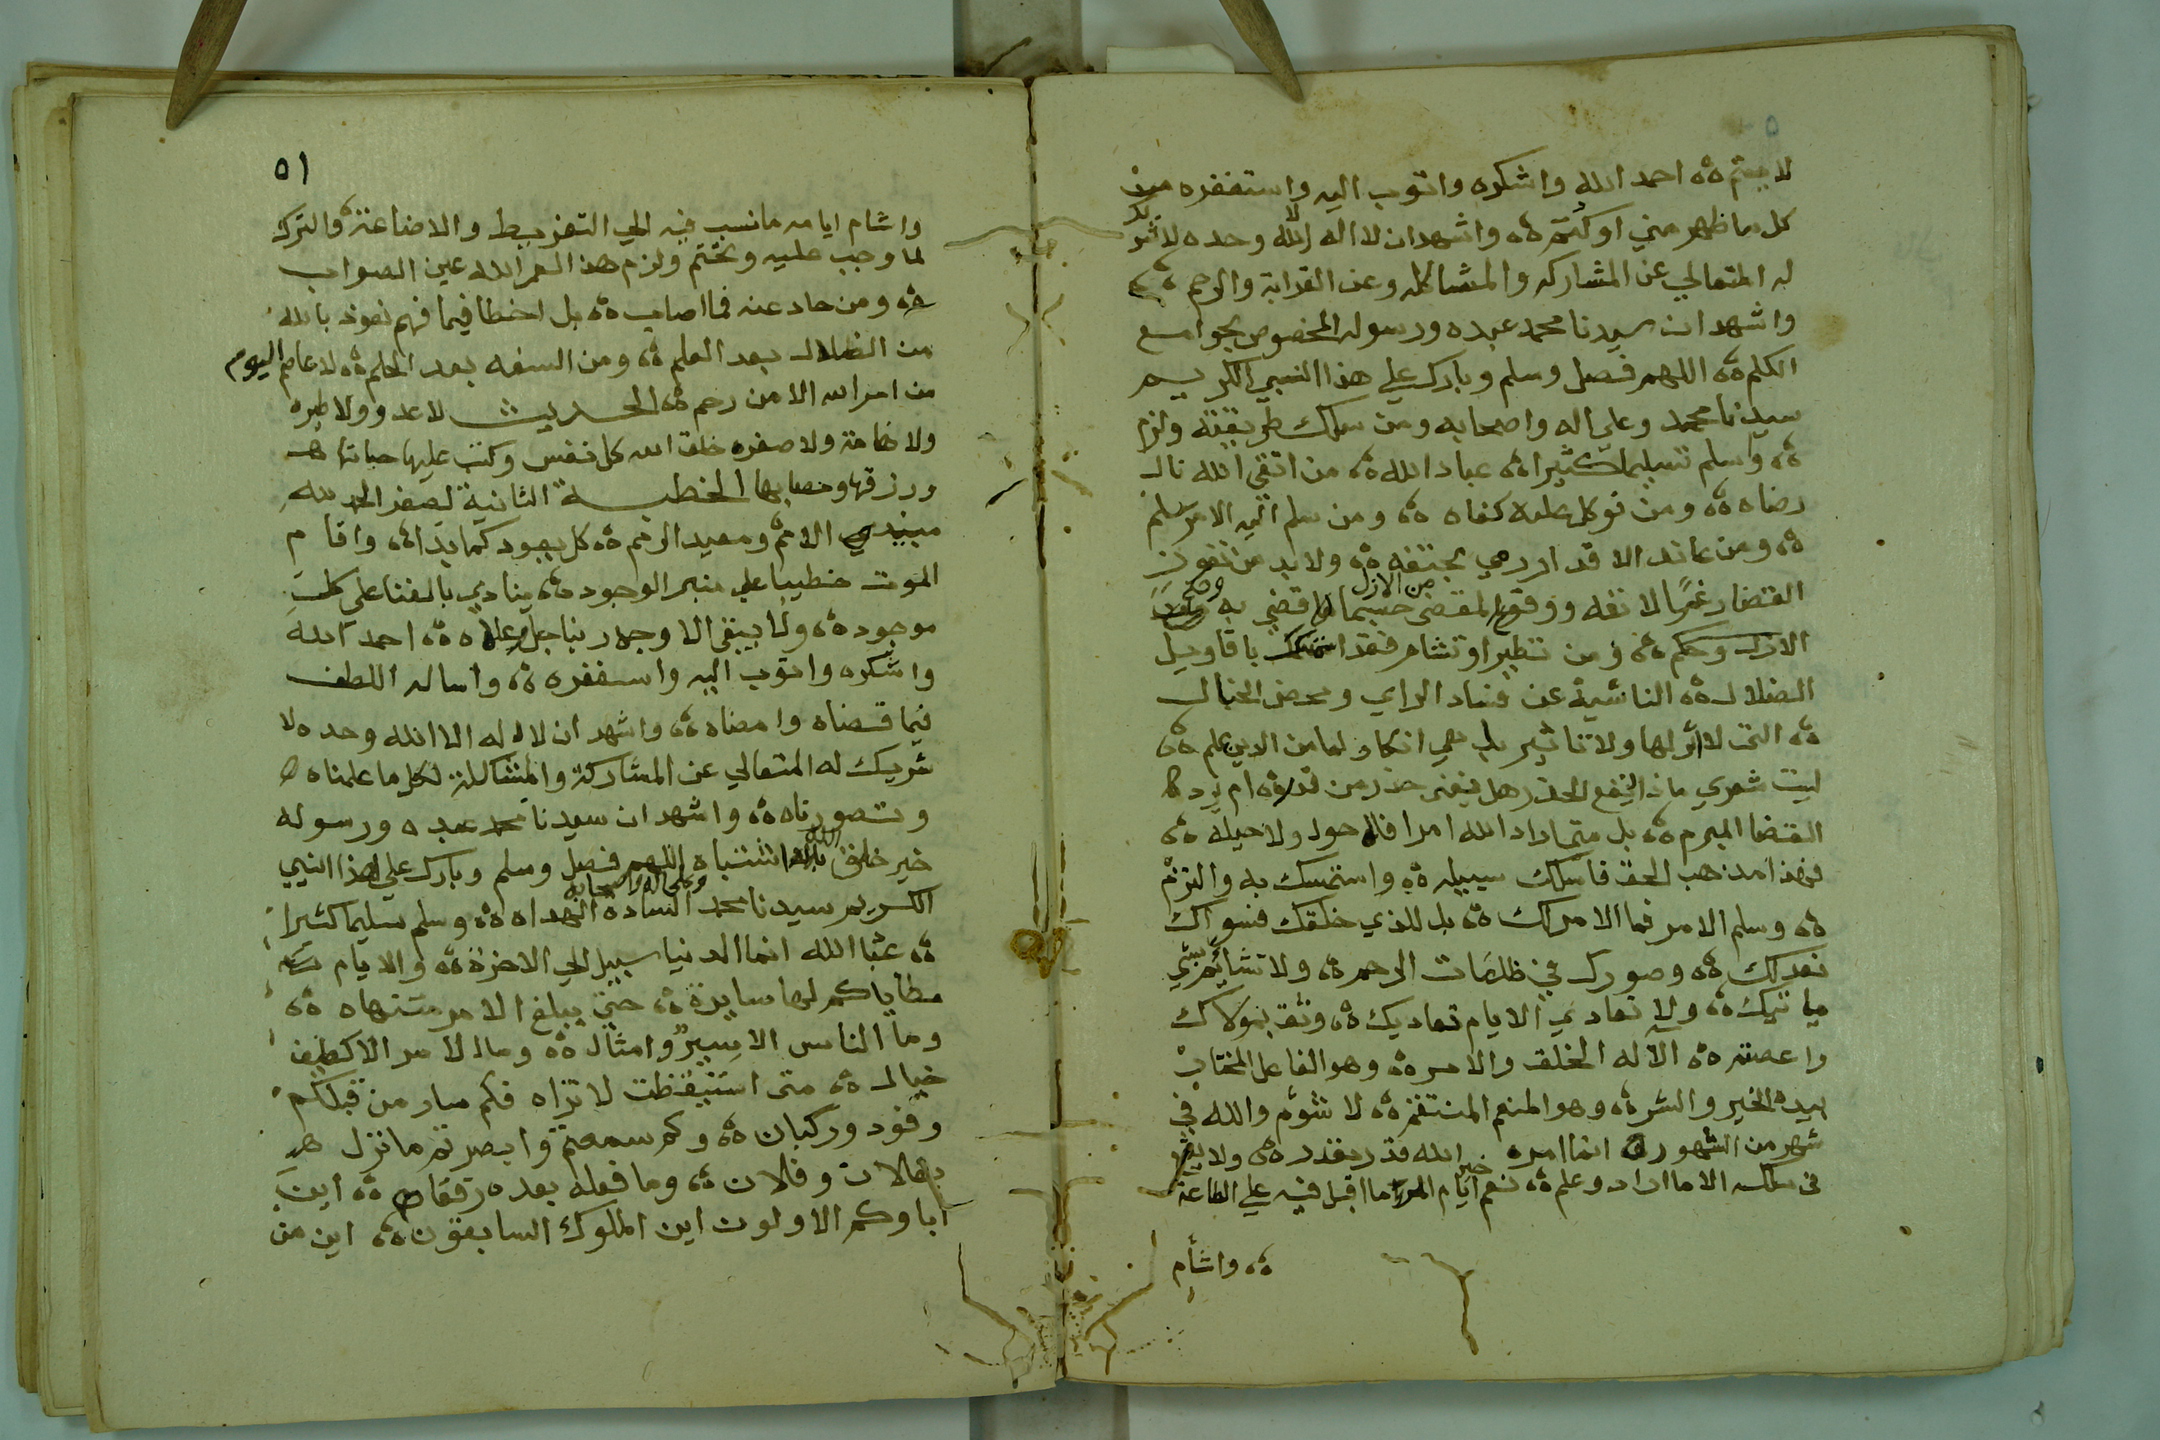 ٥٠
لا ينتم ۃۃ احمد الله واشكره واتوب اليه واستغفره من
كل ما ظهر مني او كتم ۃۃ واشهد ان لا اله الا الله وحده لا شريك
له المتعالي عن المشاركه والمشاكله وعن القرابة والرحم ۃۃ
واشهد ان سيدنا محمد عبده ورسوله المخصوص بجوامع
الكلم ۃۃ اللهم فصل وسلم وبارك علي هذا النبي الكريم
سيدنا محمد وعلي اله واصحابه ومن سلك طريقته ولزم
ۃۃ وسلم تسليما كثيرا ۃۃ عباد الله ۃۃ من اتقي الله نال
رضاه ۃۃ ومن توكل عليه كفاه ۃۃ ومن سلم اليه الامر سلم
ۃۃ ومن عاند الاقدار رمي بحتفه ۃۃ ولا بد من نفوذ
القضا رغما لانفه ووقوع المقضي حسبما قضي به من الازل
الازل وحكم ۃۃ ومن تطير او تشام فقد استمسك باقاويل
الضلال ۃۃ الناشية عن فساد الراي ومحض الخيال
ۃۃ التي لا اثر لها ولا تاثير بل هي انكار لما من الدين علم ۃۃ
ليت شعري ماذا ينفع الحذر هل يغني حذر من قدر ۃۃ ام يرد
القضا المبرم ۃۃ بل متي اراد الله امرا فلا حول ولا حيلة ۃۃ
فهذا مذهب الحق فاسلك سبيله ۃۃ واستمسك به والتزم
ۃۃ وسلم الامر فما الامر لك ۃۃ بل للذي خلقك فسواك
فعدلك ۃۃ وصورك في ظلمات الرحم ۃۃ ولا تشايم بشي
ياتيك ۃۃ ولا تعادي الايام تعاديك ۃۃ وثق بمولاك
واعتصم ۃۃ الا له الخلق والامر ۃۃ وهو الفاعل المختار
بيده الخير والشر ۃۃ وهو المنعم المنتقم ۃۃ لا شوم والله في
شهر من الشهور ۃۃ انما امره الله قدر مقدر ۃۃ ولا يقع
في ملكه الا ما اراد وعلم ۃۃ نعم خير ايام المرء ما اقبل فيه علي الطاعة
ۃۃ واشأم
٥١
واشام ايامه ما نسب فيه الي التفريط والاضاعة والترك
لما وجب عليه وتحتم ولزم هذا لعمر الله عين الصواب
ۃۃ ومن حاد عنه فما اصاب ۃۃ بل اخطا فيما فهم نعوذ بالله
من الضلال بعد العلم ۃۃ ومن السفه بعد الحلم ۃۃ لا عاصم اليوم
من امر الله الا من رحم ۃۃ الحديث لا عدوو ولا طيره
ولا هامة ولا صفره خلق الله كل نفس وكتب عليها حياتها
ورزقها ومصابها الخطبة الثانية لصفر الحمد لله
مبيدي الامم ومعيد الرمم ۃۃ كل يعود كما بدا ۃۃ واقام
الموت خطيبا علي منبر الوجود ۃۃ ينادي بالفنا علي كل
موجود ۃۃ ولا يبقي الا وجه ربنا جل علاه ۃۃ احمد الله
واشكره واتوب اليه واستغفره ۃۃ واساله اللطف
فيما قضاه وامضاه ۃۃ واشهد ان لا اله الا الله وحده لا
شريك له المتعالي عن المشاركة والمشاكلة لكل ما علمناه
وتصورناه ۃۃ واشهد ان سيدنا محمد عبده ورسوله
خير خلق الله بلا اشتباه اللهم فصل وسلم وبارك علي هذا النبي
الكريم سيدنا محمد وعلي اله واصحابه السادة الهداه ۃۃ وسلم تسليما كثيرا
ۃۃ عباد الله انما الدنيا سبيل الي الاخرة ۃۃ والايام
مطاياكم لها سايرة ۃۃ حتي يبلغ الامر منتهاه ۃۃ
وما الناس الا سير وامثال ۃۃ وما الامر الا كطيف
خيال ۃۃ متي استيقظت لا تراه فكم سار من قبلكم
وفود وركبان ۃۃ وكم سمعتم وابصرتم ما نزل
بفلان وفلان ۃۃ وما فعله بعده رفقاه ۃۃ اين
اباوكم الاولون اين الملوك السابقون ۃۃ اين من